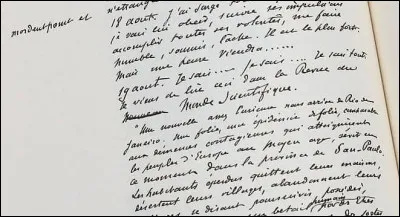 mordent et
18 août. j'ai songé
je vais lui obéir, suivre ses impulsions
accomplir toutes ses volontés, me faire
humble, soumis, lâche. Il est le plus fort.
Mais une heure viendra......
19 août. Je sais.... Je sais.... Je sais tout.
Je viens de lire ceci dans la Revue du
Monde Scientifique.
"Une nouvelle assez curieuse nous arrive de Rio de
Janeiro. Une folie, une épidémie de folie, comparable
aux démences contagieuses qui atteignirent
les peuples d'Europe au moyen age, sévit en
ce moment dans la province de San-Paulo.
Les habitants éperdus quittent leurs maisons
désertent leurs villages, abandonnent leurs
se disant poursuivis, possédés,
bétail humain par des êtres